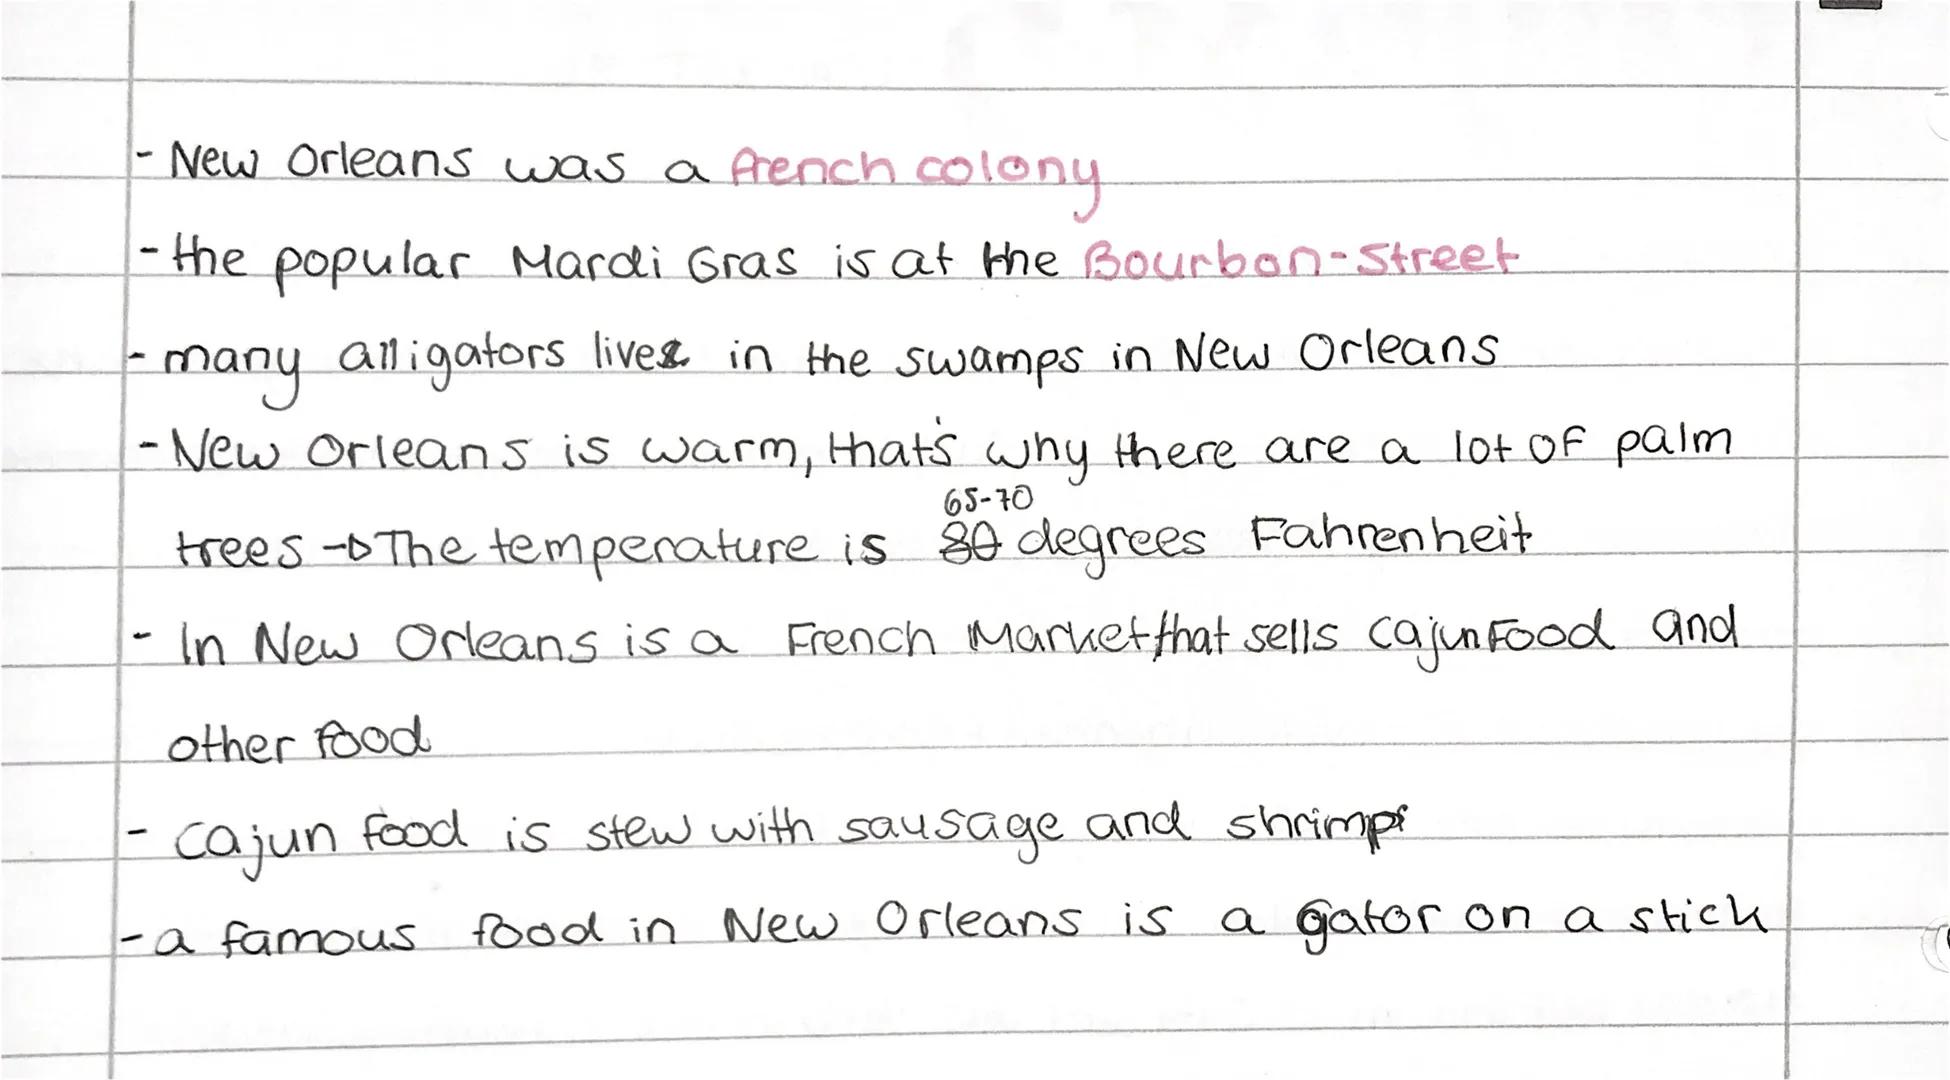 - New Orleans was a french colony
- the popular Mardi Gras is at the Bourbon-Street
- many alligators live in the swamps in New Orleans
- New Orleans is warm, that's why there are a lot of palm
65-70
trees → The temperature is 80 degrees Fahrenheit
- In New Orleans is a French Market that sells cajun Food and
other food
- cajun food is stew with sausage and shrimps
- a famous food in New Orleans is a gator on a stick